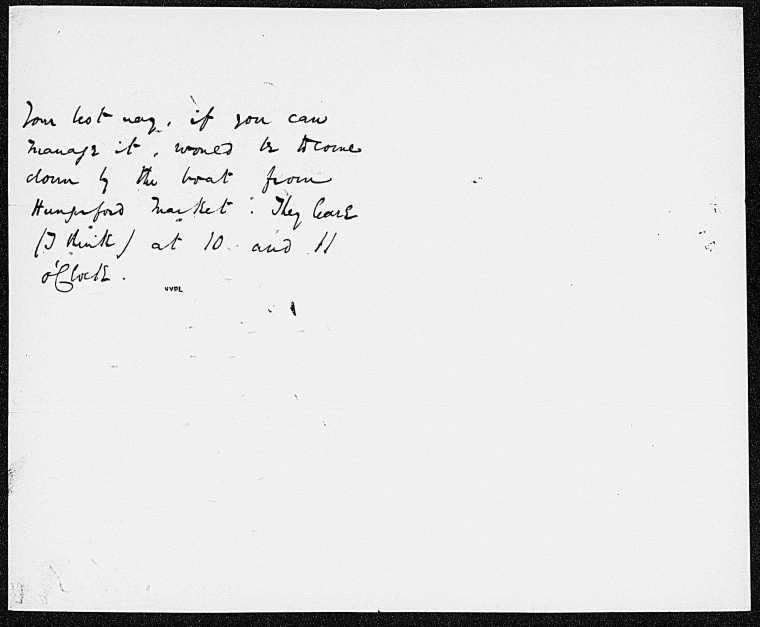 Your best way, if you can
manage it, would be to come
down by the boat from
Hungerford Market. They leave
(I think) at 10 and 11
o'Clock.
NYPL